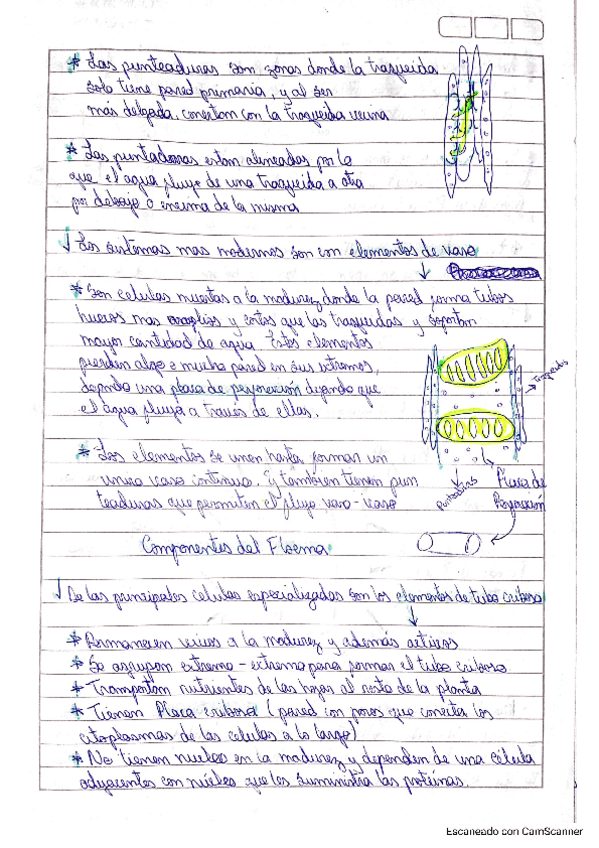 * Las punteaduras son zonas donde la traqueida
solo tiene pared primaria, y al ser
mas delgada, conectan con la traqueida vecina
* Las puntaduras estan alineadas por lo
que el agua fluye de una traqueida a otra
por debajo o encima de la misma
↓ Los sistemas mas modernos son con elementos de vaso
* Son celulas muertas a la madurez donde la pared forma tubos
huecos mas amplios y cortos que las traqueidas y soportan
mayor cantidad de agua. Estos elementos
pierden algo o mucha pared en sus extremos,
dejando una placa de perforación dejando que
el agua fluya a través de ellas.
Traqueidas
* Los elementos se unen hasta formar un
unico vaso continuo. Y tambien tienen pun
teaduras que permiten el flujo vaso-vaso
puntaduras
Placa de
Perforación
Componentes del Floema
↓ De las principales celulas especializadas son los elementos de tubo criboso
* Permanecen vivos a la madurez y además activos
* Se agrupan extremo-extremo para formar el tubo criboso
* Transportan nutrientes de las hojas al resto de la planta
* Tienen Placa cribosa (pared con poros que conecta los
citoplasmas de las celulas a lo largo)
* No tienen nucleo en la madurez y dependen de una célula
adyacentes con núcleo que les suministra las proteinas.
Escaneado con CamScanner